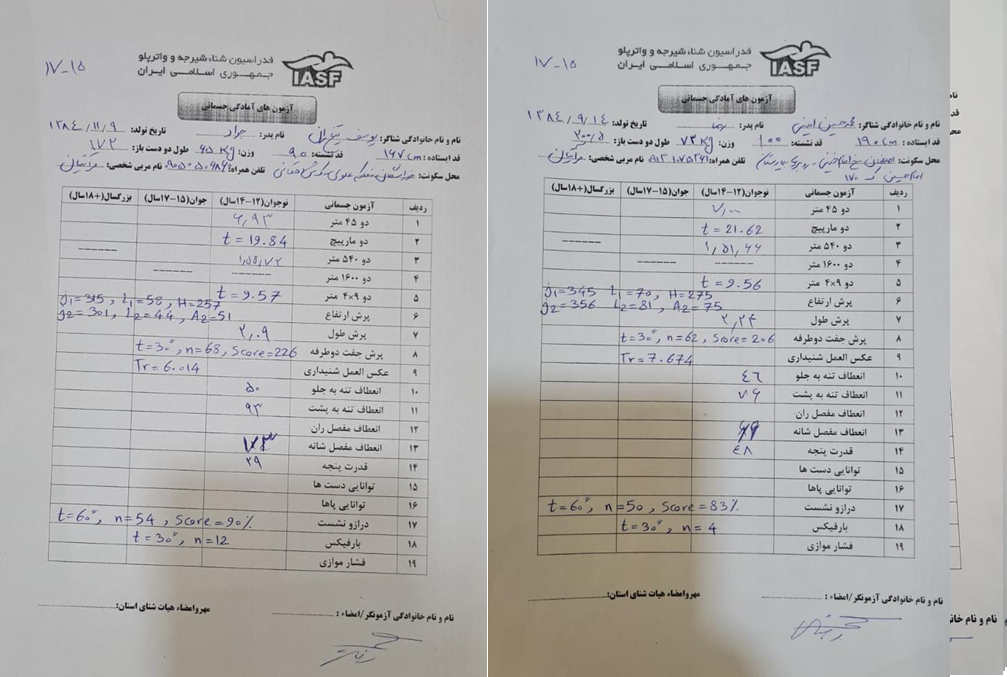 ۱۵-۱۷
فدراسیون شنا، شیرجه و واترپلو
جمهوری اسلامی ایران
IASF
آزمون های آمادگی جسمانی
نام و نام خانوادگی شناگر: یوسف نام پدر: جواد تاریخ تولد: ۱۳۸۴/۱۱/۹
قد ایستاده: ۱۶۷ cm قد نشسته: ۹۰ وزن: ۴۵ Kg طول دو دست باز: ۱۷۲
محل سکونت: تلفن همراه: نام مربی شخصی:
ردیف آزمون جسمانی نوجوان(۱۲-۱۴سال) جوان(۱۵-۱۷سال) بزرگسال(+۱۸سال)
۱ دو ۴۵ متر ۶,۹۳
۲ دو مارپیچ t = 19.84
۳ دو ۵۴۰ متر ------
۴ دو ۱۶۰۰ متر ------ ------
۵ دو ۴×۹ متر t = 9.57
۶ پرش ارتفاع J1=315, L1=58, H=257
J2=301, L2=44, A2=51
۷ پرش طول ۲,۰۹
۸ پرش جفت دوطرفه t=30", n=68, Score=226
۹ عکس العمل شنیداری Tr=6.014
۱۰ انعطاف تنه به جلو ۵۰
۱۱ انعطاف تنه به پشت ۹۳
۱۲ انعطاف مفصل ران
۱۳ انعطاف مفصل شانه
۱۴ قدرت پنجه ۲۹
۱۵ توانایی دست ها
۱۶ توانایی پاها
۱۷ درازو نشست t=60", n=54, Score=90%
۱۸ بارفیکس t=30", n=12
۱۹ فشار موازی
نام و نام خانوادگی آزمونگر/امضاء : مهروامضاء هیات شنای استان:
۱۵-۱۷
فدراسیون شنا، شیرجه و واترپلو
جمهوری اسلامی ایران
IASF
آزمون های آمادگی جسمانی
نام و نام خانوادگی شناگر: محمدحسین امینی نام پدر: رضا تاریخ تولد: ۱۳۸۴/۹/۱۴
قد ایستاده: ۱۹۰ cm قد نشسته: ۱۰۰ وزن: ۷۳ Kg طول دو دست باز: ۲۰۰/۵
محل سکونت: اصفهان تلفن همراه: نام مربی شخصی:
ردیف آزمون جسمانی نوجوان(۱۲-۱۴سال) جوان(۱۵-۱۷سال) بزرگسال(+۱۸سال)
۱ دو ۴۵ متر ۷,۰۰
۲ دو مارپیچ t = 21.62
۳ دو ۵۴۰ متر ۱,۵۱,۶۶ ------
۴ دو ۱۶۰۰ متر ------ ------
۵ دو ۴×۹ متر t = 9.56
۶ پرش ارتفاع J1=345, L1=70, H=275
J2=356, L2=81, A2=75
۷ پرش طول ۲,۲۴
۸ پرش جفت دوطرفه t=30", n=62, Score=206
۹ عکس العمل شنیداری Tr=7.674
۱۰ انعطاف تنه به جلو ٤٦
۱۱ انعطاف تنه به پشت ۷۶
۱۲ انعطاف مفصل ران
۱۳ انعطاف مفصل شانه
۱۴ قدرت پنجه ٤٨
۱۵ توانایی دست ها
۱۶ توانایی پاها
۱۷ درازو نشست t=60", n=50, Score=83%
۱۸ بارفیکس t=30", n=4
۱۹ فشار موازی
نام و نام خانوادگی آزمونگر/امضاء : مهروامضاء هیات شنای استان: